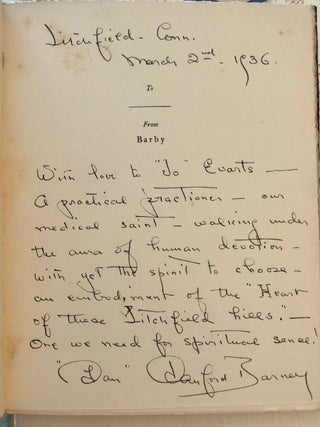 Litchfield - Conn.
March 2nd. 1936.
To
From
Barby
With love to "Jo" Evarts —
A practical practioner — our
medical saint — walking under
the aura of human devotion —
with yet the spirit to choose —
an embodiment of the "Heart
of these Litchfield hills." —
One we need for spiritual sense!
"Dan" Danford Barney